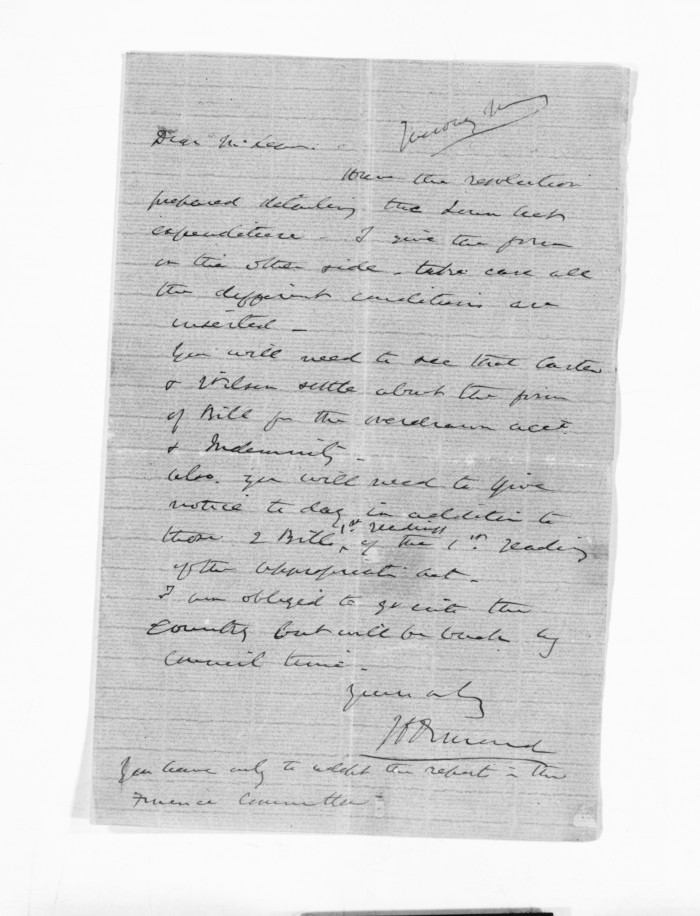 Dear McLean
Have the resolution
prepared detailing the Loan Act
expenditure - I give the form
on the other side - take care all
the different conditions are
inserted -
You will need to see that Carter
& Wilson settle about the form
of Bill for the overdrawn acct.
& Indemnity -
also. you will need to give
notice to day in addition to
those 2 Bills, 1st readings of the 1st reading
of the appropriation act -
I am obliged to go into the
Country but will be back by
Council time -
Yours truly
JD Ormond
You have only to adopt the report in the
Finance Committee